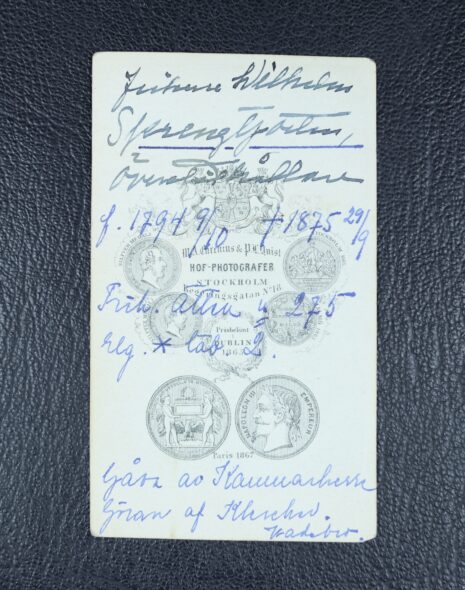 Friherre Wilhelm
Sprengtporten,
Överståthållare
f. 1794 9/10 † 1875 29/9
W. A. Eurenius & P. L. Quist
HOF-PHOTOGRAFER
STOCKHOLM
Regeringsgatan No 18
Frih. ätten No 275
Prisbelönt
DUBLIN
1865
Elg. * tab. 2.
NAPOLEON III EMPEREUR
Paris 1867
Gåva av Kammarherre
Göran af Klercker.